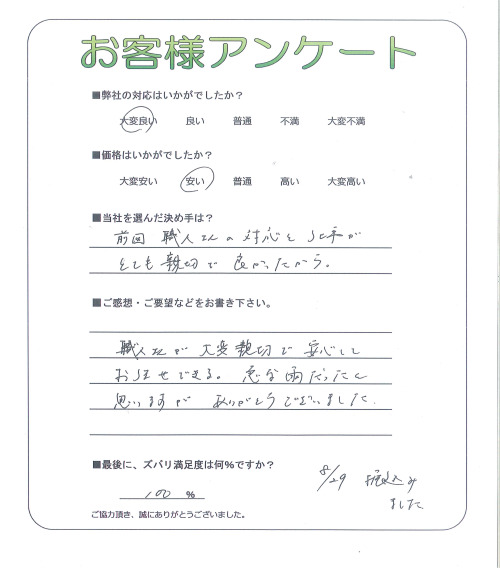 お客様アンケート
■弊社の対応はいかがでしたか？
大変良い 良い 普通 不満 大変不満
■価格はいかがでしたか？
大変安い 安い 普通 高い 大変高い
■当社を選んだ決め手は？
前回 職人さんの対応も 上手が
とても親切で 良かったから。
■ご感想・ご要望などをお書き下さい。
職人さんが 大変親切で 安心して
お任せできる。急な雨だったと
思いますが ありがとうございました
■最後に、ズバリ満足度は何％ですか？
100 %
8/29 振込み
ました
ご協力頂き、誠にありがとうございました。